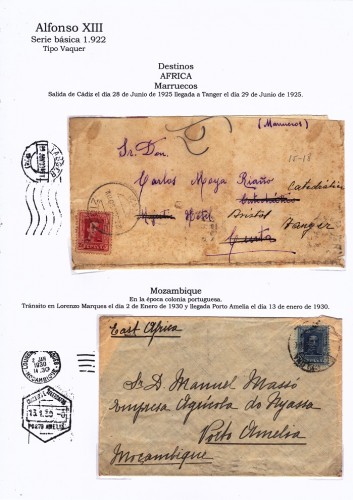 Alfonso XIII
Serie básica 1.922
Tipo Vaquer
Destinos
AFRICA
Marruecos
Salida de Cádiz el día 28 de Junio de 1925 llegada a Tanger el día 29 de Junio de 1925.
(Marruecos)
Sr. Don.
15-18
Carlos Moya Riaño
Catedrático
Catedrático
Hotel Bristol
Tanger
Ceuta
TANGER
Mozambique
En la época colonia portuguesa.
Tránsito en Lorenzo Marques el día 2 de Enero de 1930 y llegada Porto Amelia el día 13 de enero de 1930.
East Africa
S. D. Manuel Massó
Empresa Agricola do Nyassa
Porto Amelia
Moçambique
2 JAN
1930
MOÇAMBIQUE
13.1.30
PORTO AMELIA